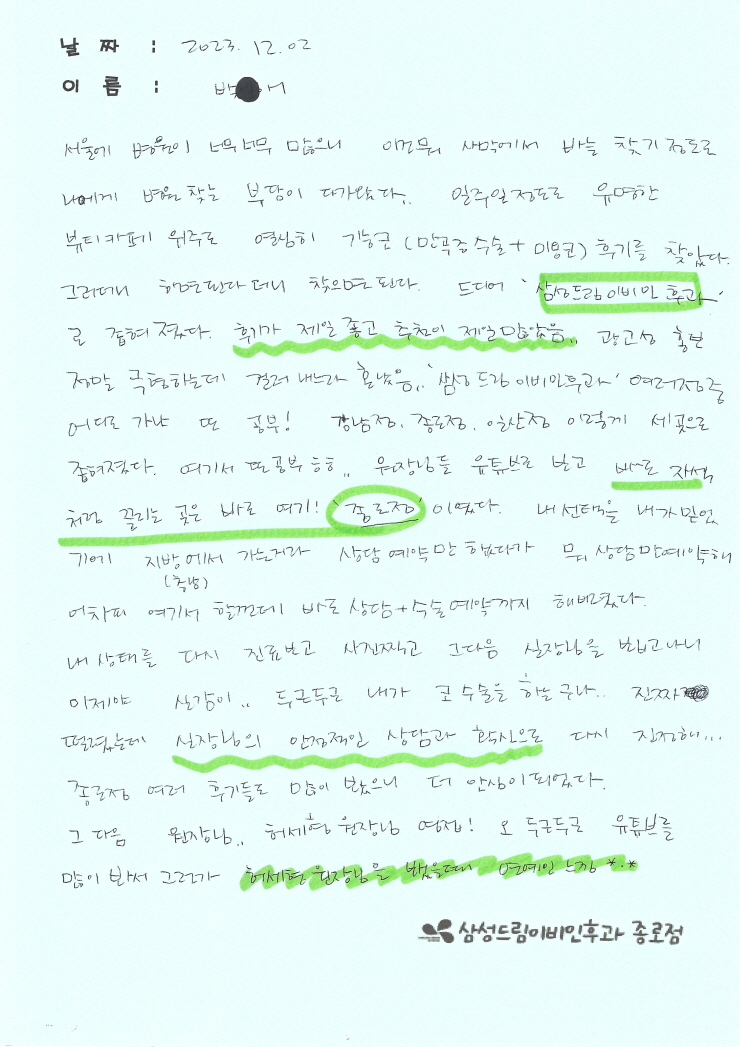 날 짜 : 2023. 12. 02
이 름 : 박
서울에 병원이 너무너무 많으니 이건뭐 사막에서 바늘 찾기 정도로
나에게 병원 찾는 부담이 다가왔다. 일주일정도로 유명한
뷰티카페 위주로 열심히 기능코 (만곡증수술+미용코) 후기를 찾았다.
그러더니 하면된다더니 찾으면 된다. 드디어 '삼성드림이비인후과'
로 좁혀졌다. 후기가 제일 좋고 추천이 제일 많았음.. 광고성 홍보
정말 극혐하는데 걸러내느라 혼났음.. '삼성드림이비인후과' 여러점중
어디로 가나 또 공부! 강남점, 종로점, 일산점 이렇게 세곳으로
좁혀졌다. 여기서 또공부 흐흐.. 원장님들 유튜브로 보고 바로 자석
처럼 끌리는 곳은 바로 여기! '종로점' 이였다. 내선택을 내가믿었
기에 지방에서 가는거라 상담예약만 했다가 뭐 상담만예약해
(충남)
어차피 여기서 할껀데 바로 상담+수술예약까지 해버렸다.
내 상태를 다시 진료보고 사진찍고 그다음 실장님을 뵙고나니
이제야 실감이.. 두근두근 내가 코 수술을 하는구나.. 진짜
떨렸는데 실장님의 안정적인 상담과 확신으로 다시 진정해...
종로점 여러 후기들도 많이 봤으니 더 안심이 되었다.
그 다음 원장님.. 허세형 원장님 영접! 오 두근두근 유튜브를
많이 봐서 그런가 허세형원장님을 뵀을때 연예인 느낌 *.*
삼성드림이비인후과 종로점